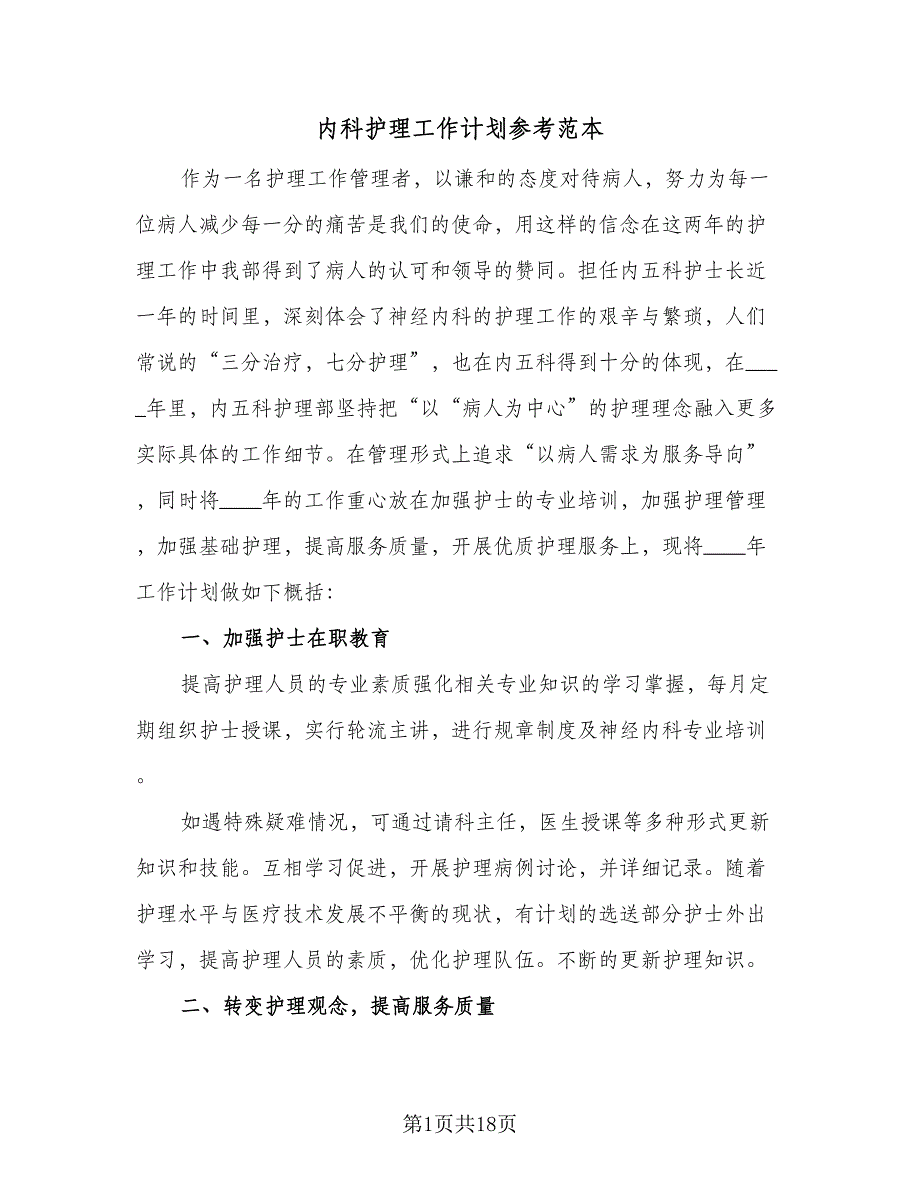 内科护理工作计划参考范本
作为一名护理工作管理者，以谦和的态度对待病人，努力为每一
位病人减少每一分的痛苦是我们的使命，用这样的信念在这两年的护
理工作中我部得到了病人的认可和领导的赞同。担任内五科护士长近
一年的时间里，深刻体会了神经内科的护理工作的艰辛与繁琐，人们
常说的“三分治疗，七分护理”，也在内五科得到十分的体现，在___
_年里，内五科护理部坚持把“以“病人为中心”的护理理念融入更多
实际具体的工作细节。在管理形式上追求“以病人需求为服务导向”
，同时将____年的工作重心放在加强护士的专业培训，加强护理管理
，加强基础护理，提高服务质量，开展优质护理服务上，现将____年
工作计划做如下概括：
一、加强护士在职教育
提高护理人员的专业素质强化相关专业知识的学习掌握，每月定
期组织护士授课，实行轮流主讲，进行规章制度及神经内科专业培训
。
如遇特殊疑难情况，可通过请科主任，医生授课等多种形式更新
知识和技能。互相学习促进，开展护理病例讨论，并详细记录。随着
护理水平与医疗技术发展不平衡的现状，有计划的选送部分护士外出
学习，提高护理人员的素质，优化护理队伍。不断的更新护理知识。
二、转变护理观念，提高服务质量
第1页共18页